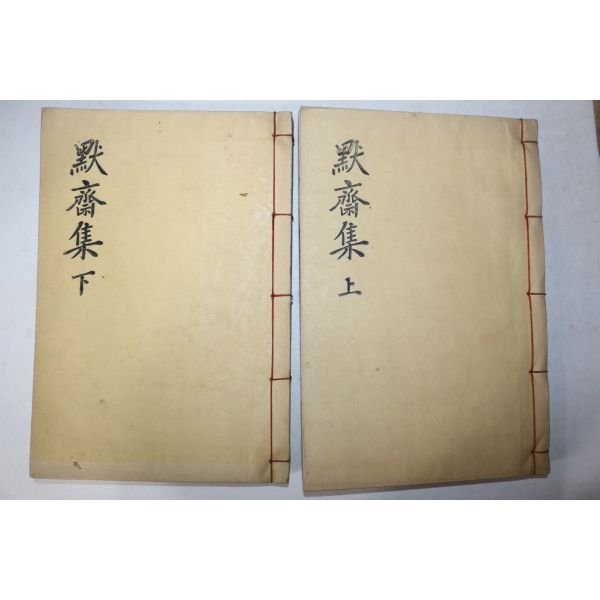 默齋集 下
默齋集 上